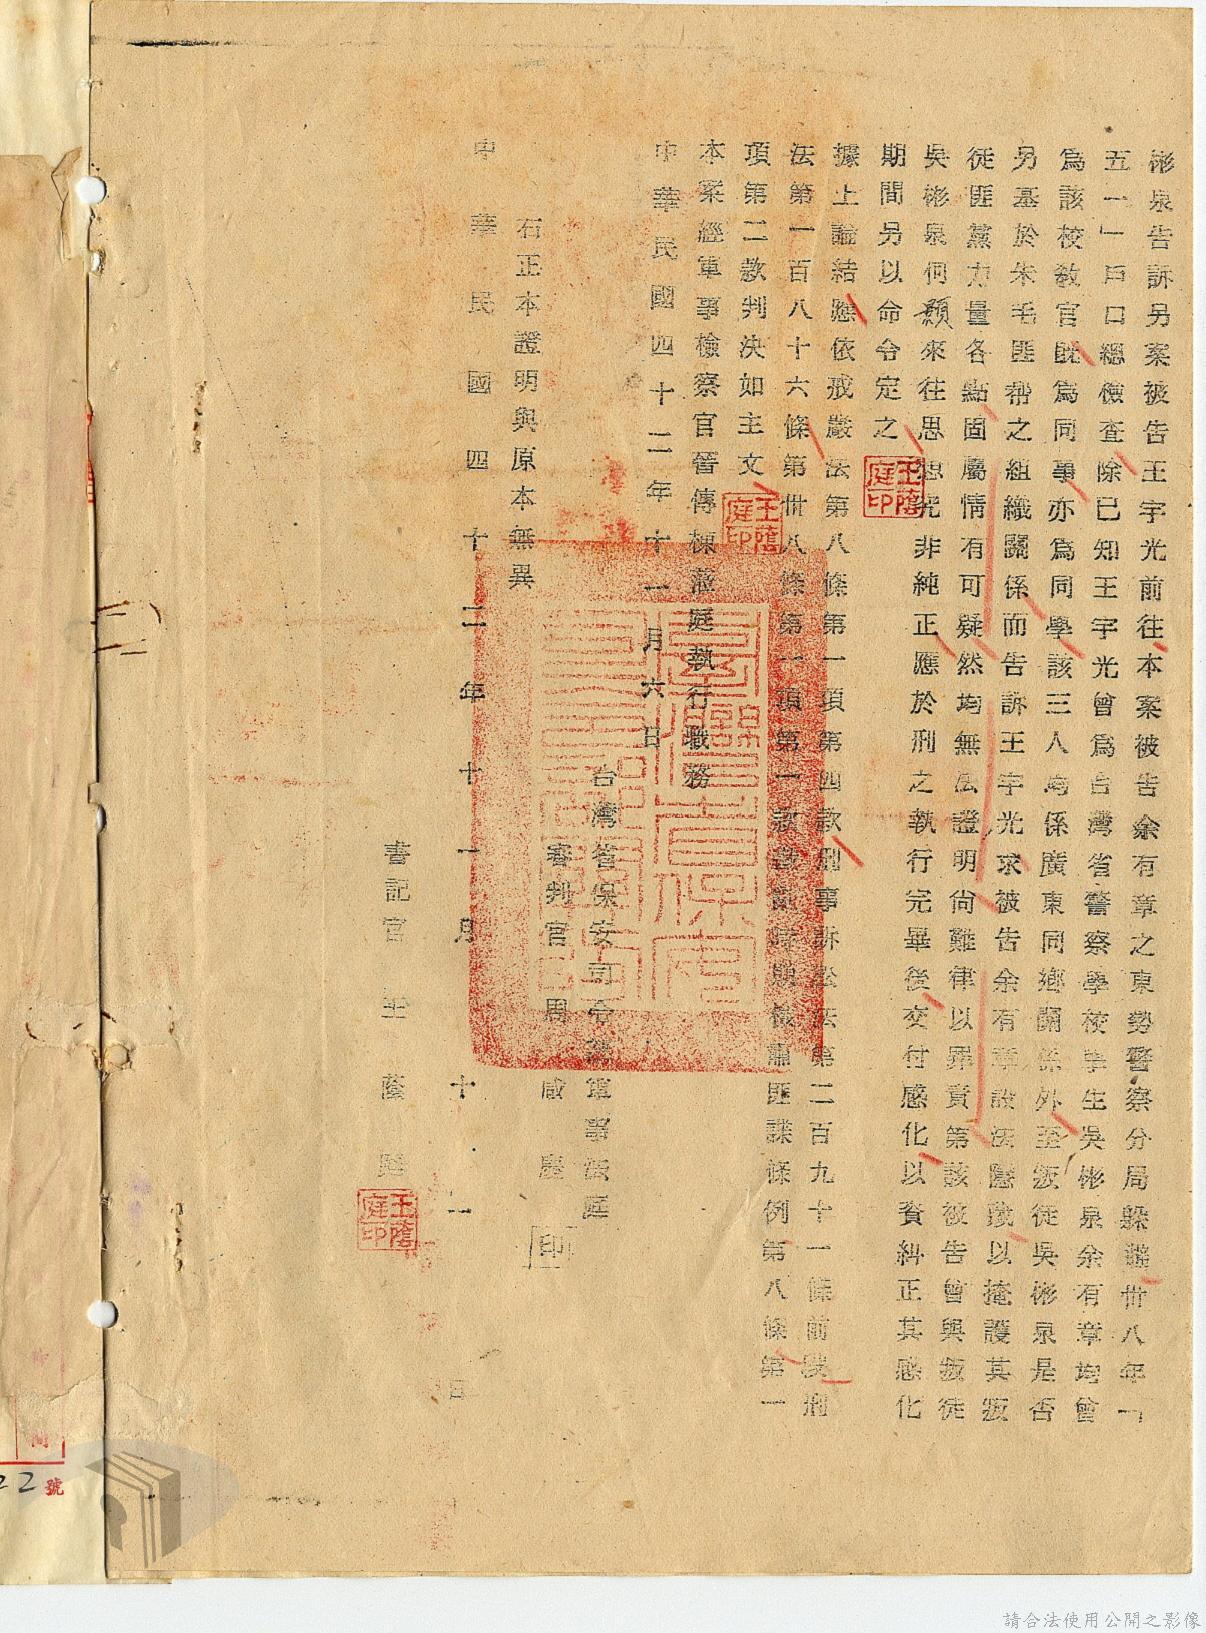 彬泉告訴另案被告王宇光前往本案被告余有章之東勢警察分局躲避卅八年「
五一」戶口總檢查除已知王宇光曾為台灣省警察學校學生吳彬泉余有章均曾
為該校教官既為同事亦為同學該三人均係廣東同鄉關係外至叛徒吳彬泉是否
另基於朱毛匪幫之組織關係而告訴王宇光求被告余有章設法隱蔽以掩護其叛
徒匪黨力量各點固屬情有可疑然均無法證明尚難律以罪責第該被告曾與叛徒
吳彬泉何顏來往思想究非純正應於刑之執行完畢後交付感化以資糾正其感化
期間另以命令定之
據上論結應依戒嚴法第八條第一項第四款刑事訴訟法第二百九十一條前段刑
法第一百八十六條第卅八條第一項第一款戡亂時期檢肅匪諜條例第八條第一
項第二款判決如主文
本案經軍事檢察官晉傳棟蒞庭執行職務
中華民國四十二年十一月六日
台灣省保安司令部軍事法庭
審判官 周咸慶 印
右正本證明與原本無異
中華民國四十二年十一月十二日
書記官 王蔭庭
王蔭庭印
王蔭庭印
王蔭庭印
22號
請合法使用公開之影像